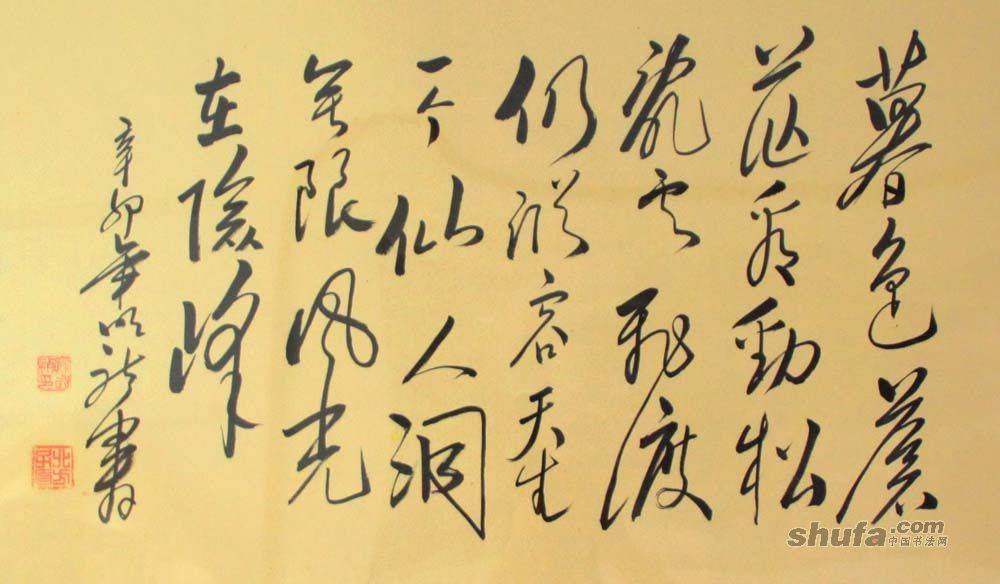 暮色蒼
茫看勁松
亂云飛渡
仍從容天生
一个仙人洞
無限风光
在險峰
辛卯年
書
shufa.com
中国书法网